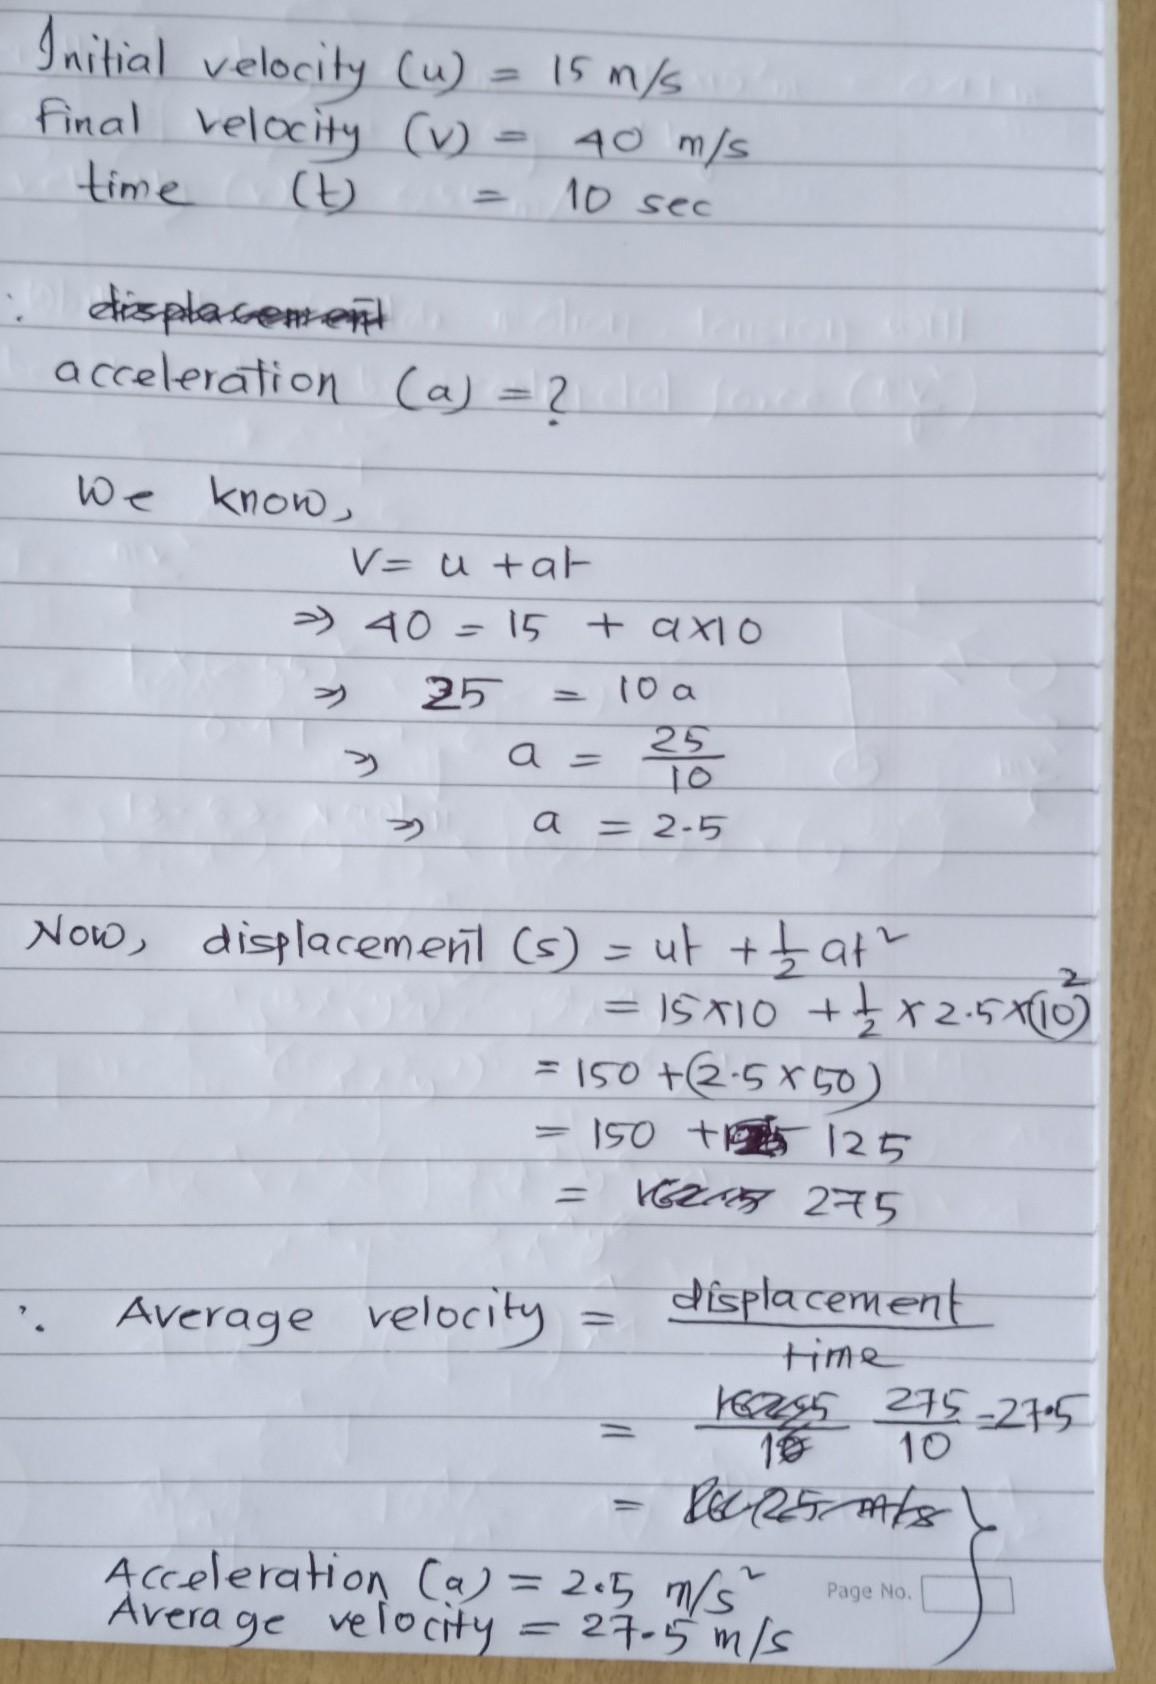 Initial velocity (u) = 15 m/s
final velocity (v) = 40 m/s
time (t) = 10 sec
∴ displacement
acceleration (a) = ?
We know,
v = u + at
⇒ 40 = 15 + a×10
⇒ 25 = 10 a
⇒ a = 25/10
⇒ a = 2.5
Now, displacement (s) = ut + 1/2 at²
= 15×10 + 1/2 × 2.5×(10)²
= 150 + (2.5 × 50)
= 150 + 125
= 275
∴ Average velocity = displacement/time
= 275/10 = 27.5
=
Acceleration (a) = 2.5 m/s²
Page No.
Average velocity = 27.5 m/s